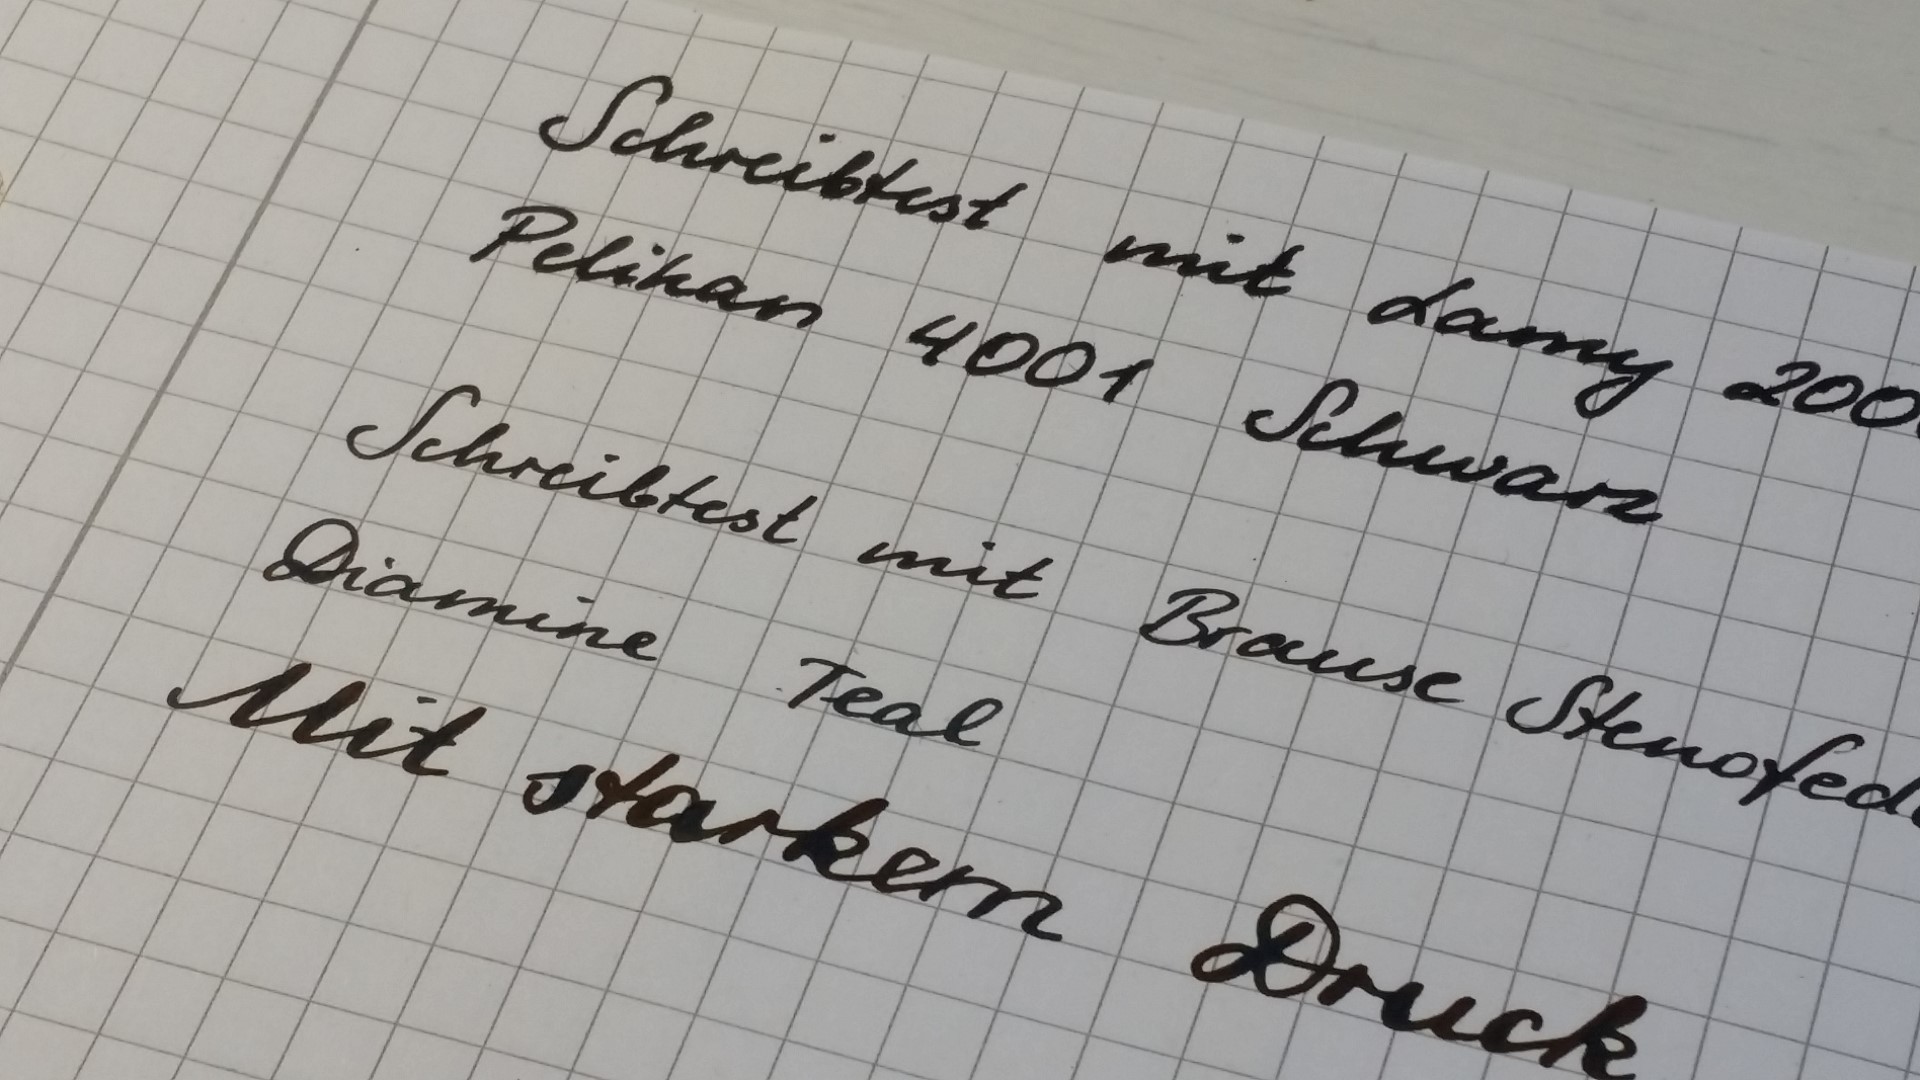 Schreibtest mit Lamy 200
Pelikan 4001 Schwarz
Schreibtest mit Brause Stenofed
Diamine Teal
Mit starkem Druck